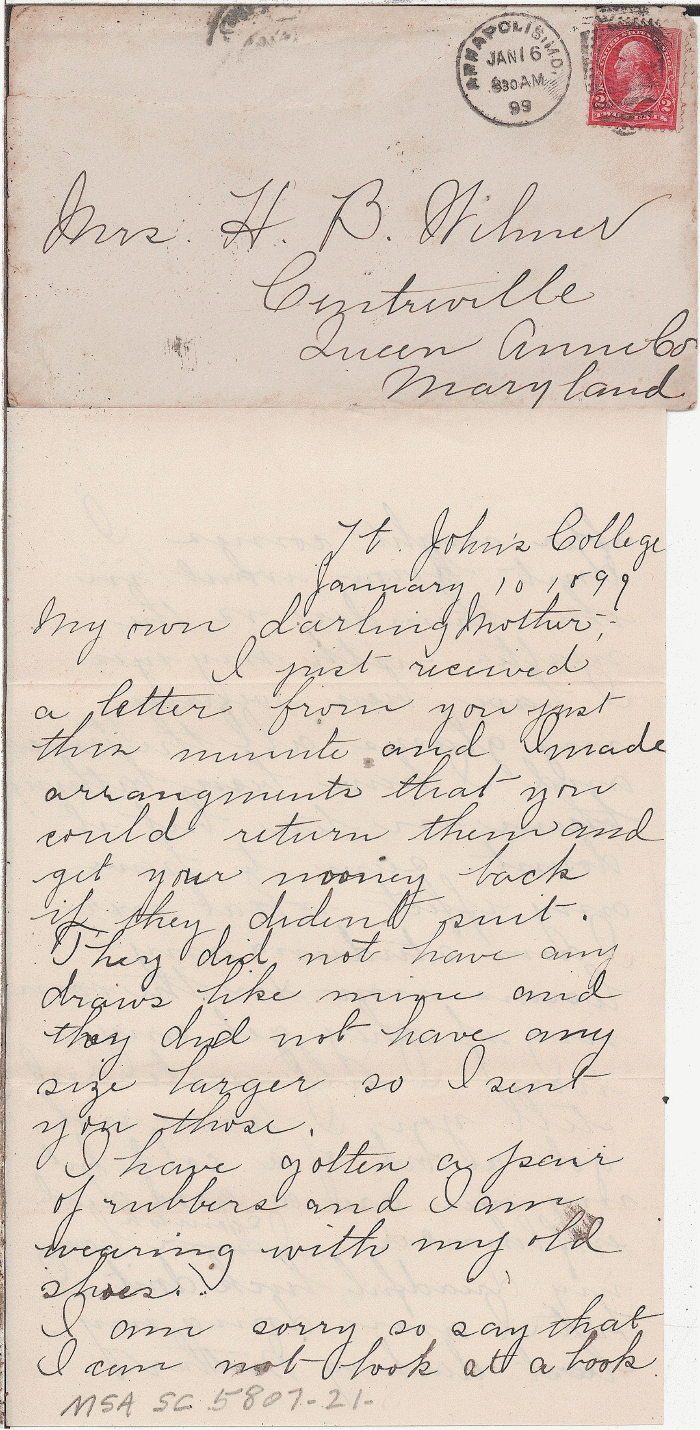 ANNAPOLIS, MD.
JAN 16
830 AM
99
UNITED STATES
2 2
TWO CENTS
Mrs. H. B. Wilmer
Centreville
Queen Anne Co
Maryland
St. John's College
January 10 1899
My own darling Mother,-
I just received
a letter from you just
this minute and I made
arrangments that you
could return them and
get your money back
if they diden't suit.
They did not have any
draws like mine and
they did not have any
size larger so I sent
you those.
I have gotten a pair
of rubbers and I am
wearing with my old
shoes.
I am sorry so say that
I can not look at a book
MSA SC 5807-21-